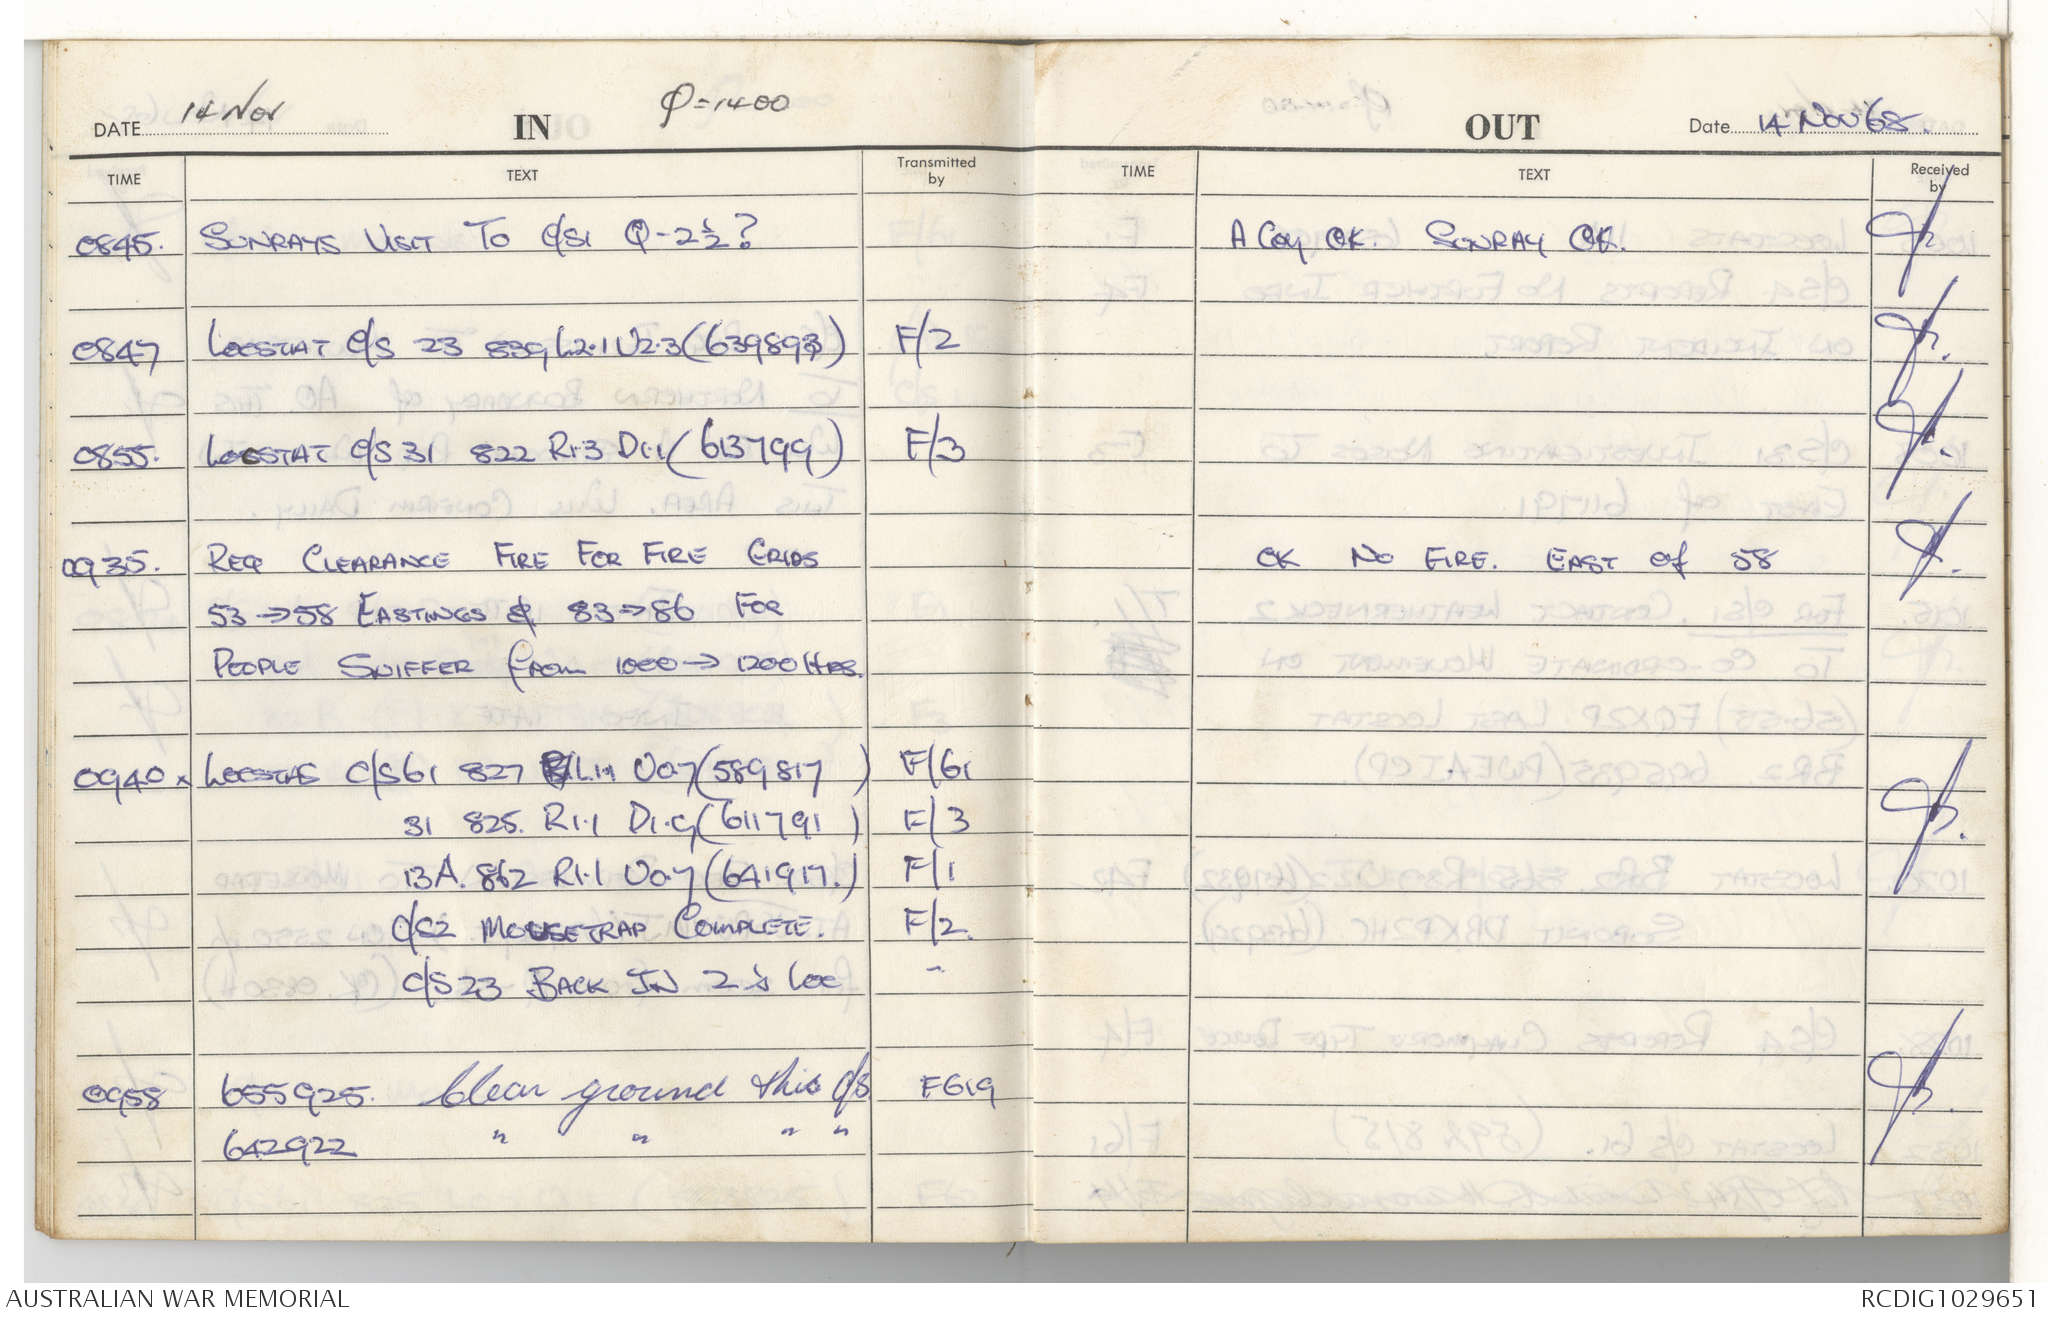 14 Nov
DATE
IN
Φ=1400
TIME
TEXT
Transmitted by
0845. SUNRAYS VISIT TO C/S1 Q-2½?
0847 LOCSTAT C/S 23 839 L2.1 U2.3 (639893) F/2
0855. LOCSTAT C/S 31 822 R1.3 D1.1 (613799) F/3
0935. REQ CLEARANCE FIRE FOR FIRE GRIDS
53→58 EASTINGS & 83→86 FOR
PEOPLE SNIFFER FROM 1000→1200HRS.
0940 x LOCSTAS C/S61 827 L1.1 U0.7 (589817) F/61
31 825. R1.1 D1.9 (611791) F/3
13A. 862 R1.1 U0.7 (641917.) F/1
C/S2 MOUSETRAP COMPLETE. F/2.
C/S 23 BACK IN 2's LOC "
0958 655925. Clear ground this C/S F619
642922 " " " "
OUT
Date 14 NOV '68.
TIME
TEXT
Received by
A Coy OK. SUNRAY OK.
OK NO FIRE. EAST of 58
AUSTRALIAN WAR MEMORIAL
RCDIG1029651